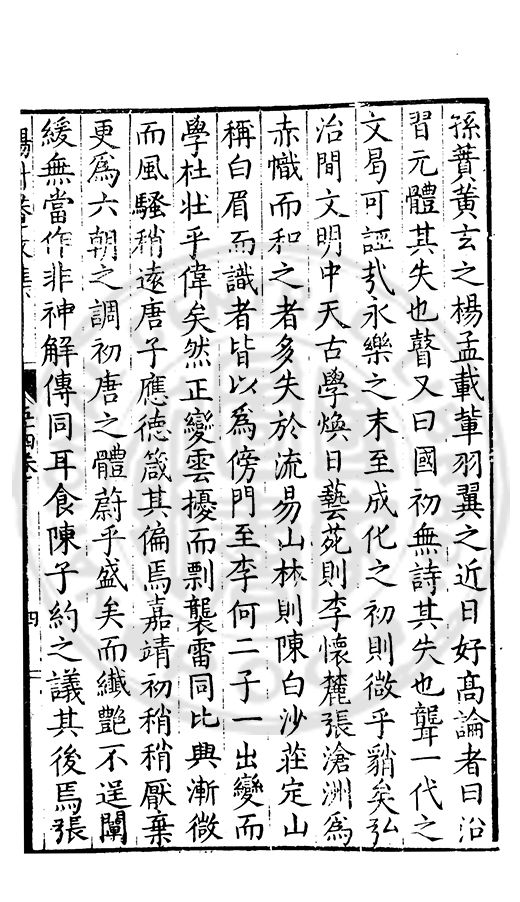 孫蕡黄玄之楊孟載軰羽翼之近日好髙論者曰沿
習元體其失也瞽又曰國初無詩其失也聾一代之
文曷可誣㢤永樂之末至成化之初則微乎藐矣弘
治間文明中天古學煥日藝苑則李懷麓張滄洲爲
赤幟而和之者多失於流易山林則陳白沙莊定山
稱白眉而識者皆以爲傍門至李何二子一出變而
學杜壯乎偉矣然正變雲擾而剽襲雷同比興漸微
而風騷稍逺唐子應德箴其偏焉嘉靖初稍稍厭棄
更爲六朝之調初唐之體蔚乎盛矣而纖艷不逞闡
緩無當作非神解傳同耳食陳子約之議其後焉張
四